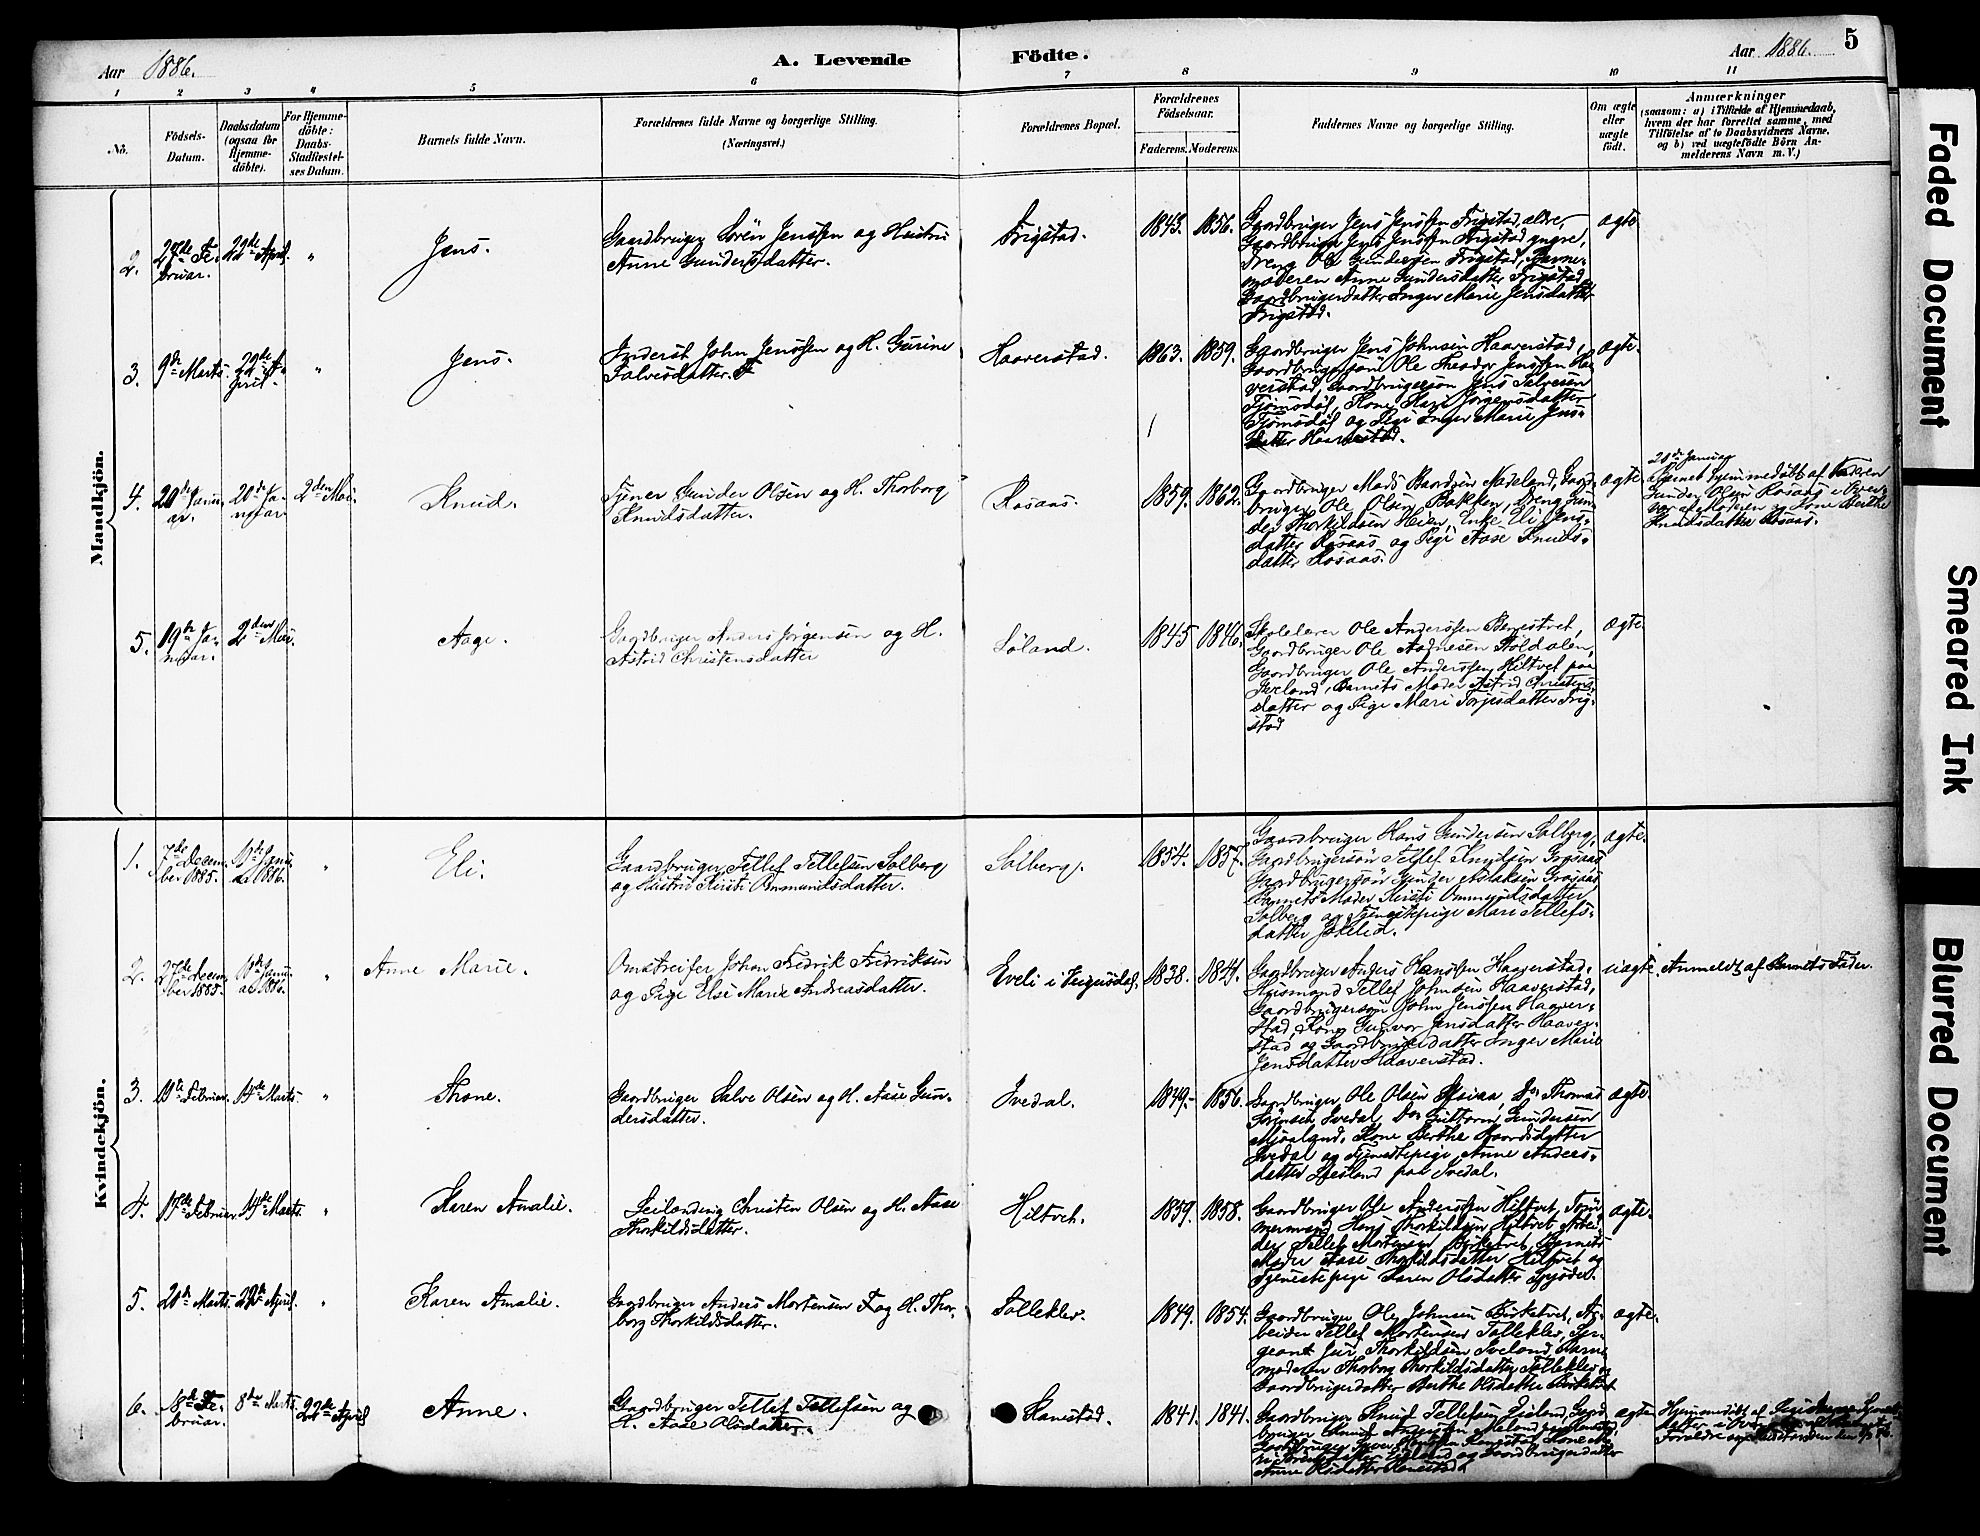 Aar 1886.
A. Levende
Födte.
Aar 1886.
5
1 2 3 4 5 6 7 8 9 10 11
No.
Födsels-
Datum.
Daabsdatum
(ogsaa for
Hjemme-
döbte).
For Hjemme-
döbte:
Daabs-
Stadfæstel-
ses Datum.
Barnets fulde Navn.
Forældrenes fulde Navne og borgerlige Stilling.
(Næringsvei.)
Forældrenes Bopæl.
Forældrenes
Födselsaar.
Faderens. Moderens.
Faddernes Navne og borgerlige Stilling.
Om ægte
eller
uægte
födt.
Anmærkninger
(saasom: a) i Tilfælde af Hjemmedaab,
hvem der har forrettet samme, med
Tilföielse af to Daabsvidners Navne,
og b) ved uægtefödte Börn An-
melderens Navn m. V.)
Mandkjön.
2.
27de Fe-
bruar.
22de April.
"
Jens.
Gaardbruger Sören Jensen og Hustru
Anne Gundersdatter.
Frigstad.
1843. 1856.
Gaardbruger Jens Jensen Frigstad ældre,
Gaardbruger Jens Jensen Frigstad yngre,
Dreng Ole Gundersen Frigstad, Barne-
moderen Anne Gundersdatter Frigstad,
Gaardbrugerdatter Inger Marie Jensdatter
Frigstad.
ægte
3.
9de Marts.
22de A-
pril.
"
Jens.
Inderst John Jensen og H. Gurine
Salvesdatter.
Haaverstad.
1863. 1859.
Gaardbruger Jens Johnsen Haaverstad,
Gaardbrugersön Ole Theodor Jensen Haa-
verstad, Gaardbrugersön Jens Salvesen
Kone Kari Jörgensdatter
og Pige Inger Marie Jens-
datter Haaverstad.
ægte.
4.
20de Janu-
ar.
20de Ja-
nuar.
2den Mai.
Knud.
Tjener Gunder Olsen og H. Thorborg
Knudsdatter.
Rosaas.
1859. 1862.
Gaardbruger Mads Baardsen Nateland, Gaard-
bruger Ole Olsen Bakken, Dreng Gun-
der Thorkildsen Heien, Enke Eli Jens-
datter Rosaas og Pige Aase Knuds-
datter Rosaas.
ægte.
20de Januar
Barnet hjemmedöbt af Faderen
Gunder Olsen Rosaas i Over-
vær af Moderen og Kone Berthe
Knudsdatter Rosaas.
5.
19de Ja-
nuar.
2den Mai.
Aage.
Gaardbruger Anders Jörgensen og H.
Astrid Christensdatter
Söland.
1845 1846.
Skolelærer Ole Andersen Birketvet,
Gaardbruger Ole Aagesen
Gaardbruger Ole Andersen Hiltvet paa
Iveland, Barnets Moder Astrid Christens-
datter og Pige Mari Torjesdatter Frig-
stad
ægte.
Kvindekjön.
1.
7de Decem-
ber 1885.
10de Janu-
ar 1886.
"
Eli.
Gaardbruger Tellef Tellefsen Solberg
og Hustru Kirsti Ommundsdatter.
Solberg.
1854. 1857.
Gaardbruger Hans Gundersen Solberg,
Gaardbrugersön Tellef Knudsen Grosaas,
Gaardbrugersön Gunder Aslaksen Grosaas,
Barnets Moder Kirsti Ommundsdatter
Solberg og Tjenestepige Mari Tellefs-
datter
ægte.
2.
27de Decem-
ber 1885.
10de Janu-
ar 1886.
"
Anne Marie.
Omstreifer Johan Fredrik Fredriksen
og Pige Else Marie Andreasdatter.
Eveli i Vegusdal.
1838. 1841.
Gaardbruger Anders Hansen Haaverstad,
Husmand Tellef Johnsen Haaverstad,
Gaardbrugersön John Jensen Haaver-
stad, Kone Gunvor Jensdatter Haaver-
stad og Gaardbrugerdatter Inger Marie
Jensdatter Haaverstad.
uægte.
Anmeldt af Barnets Fader.
3.
Februar.
14de Marts.
"
Thone.
Gaardbruger Salve Olsen og H. Aase Gun-
dersdatter.
Ivedal.
1849. 1856.
Gaardbruger Ole Olsen Do Thomas
Sörensen Ivedal, Do Guttorm Gundersen
Mjaaland, Kone Berthe Baardsdatter
Ivedal og Tjenestepige Anne Anders-
datter paa Ivedal.
ægte.
4.
17de Februar.
14de Marts.
"
Karen Amalie.
Christen Olsen og H. Aase
Thorkildsdatter.
Hiltvet.
1859. 1858.
Gaardbruger Ole Andersen Hiltvet, Töm-
mermand Hans Thorkildsen Hiltvet, Arbei-
der Tellef Mortensen Birketvet, Barnets
Moder Aase Thorkildsdatter Hiltvet og
Tjenestepige Karen Olsdatter
ægte.
5.
20de Marts.
22de April.
"
Karen Amalie.
Gaardbruger Anders Mortensen og H. Thor-
borg Thorkildsdatter.
Tolleklev.
1849. 1854.
Gaardbruger Ole Johnsen Birketvet, Ar-
beider Tellef Mortensen Tolleklev, Ser-
geant Thorkildsen Iveland, Barne-
moderen Thorborg Thorkildsdatter Tolleklev og
Gaardbrugerdatter Berthe Olsdatter Birketvet
ægte.
6.
8de Fe-
bruar.
8de Marts.
22de April
Anne.
Gaardbruger Tellef Tellefsen og
H. Aase Olsdatter.
Kanestad.
1841. 1841.
Gaardbruger Knud Tellefsen Gaard-
bruger Knud
Gaardbruger Kanestad, Kone
og Gaardbrugerdatter
Anne Olsdatter Kanestad
ægte
Hjemmedöbt af Pige
datter i
Forældre
Faded Document
Smeared Ink
Blurred Document